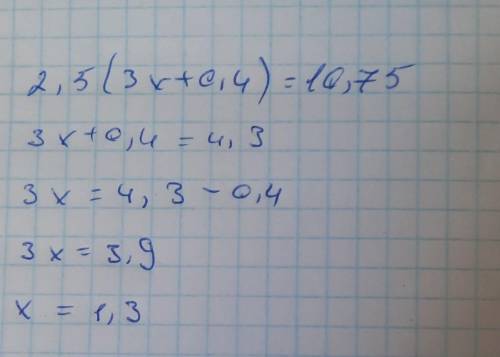 2,5(3x+0,4)=10,75
3x+0,4=4,3
3x=4,3-0,4
3x=3,9
x=1,3